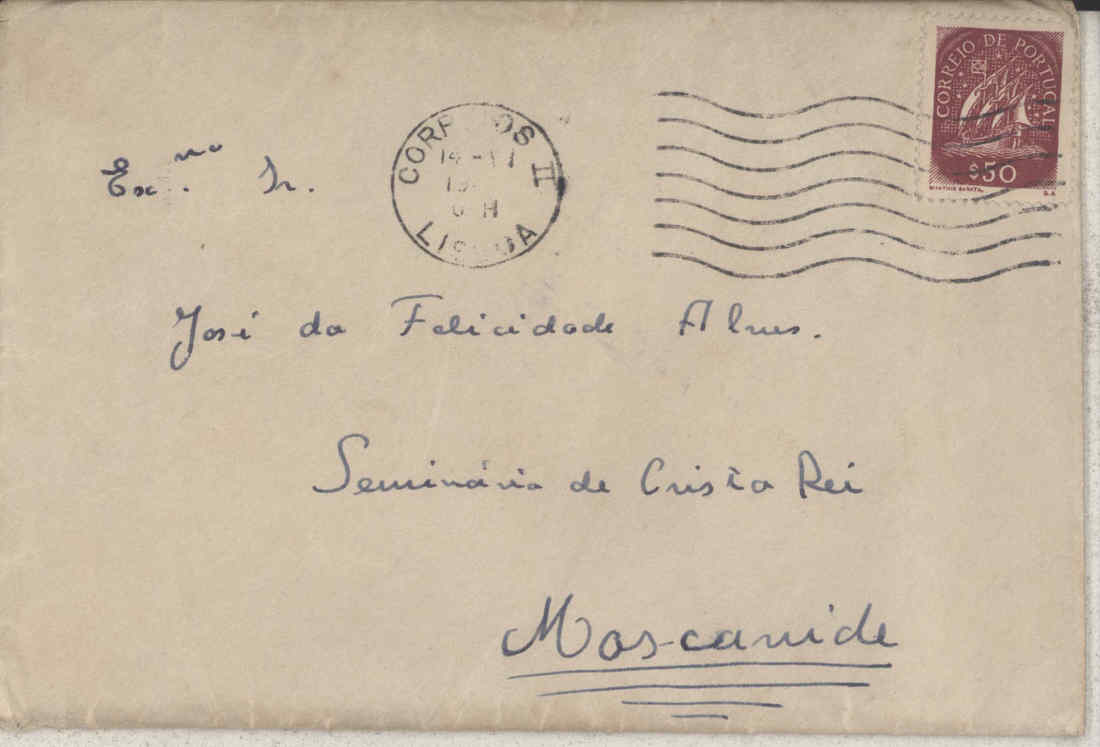 CORREIO DE PORTUGAL
$50
CORREIOS II
14-VI
19
H
LISBOA
Ex.mo Sr.
José da Felicidade Alves.
Seminário de Cristo Rei
Moscavide